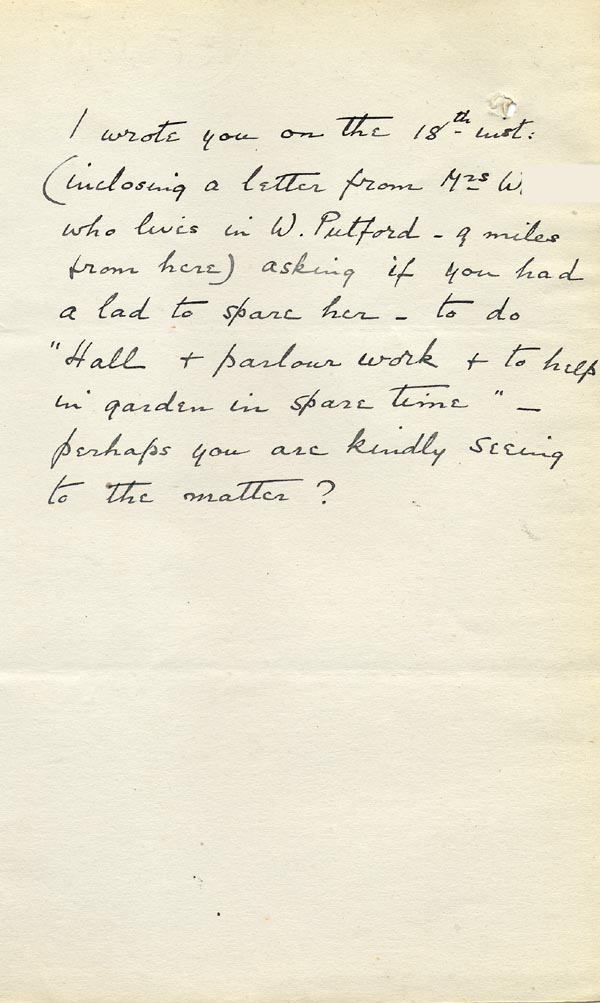 I wrote you on the 18th inst:
(inclosing a letter from Mrs W
who lives in W. Putford - 9 miles
from here) asking if you had
a lad to spare her - to do
"Hall + parlour work + to help
in garden in spare time" -
perhaps you are kindly seeing
to the matter?